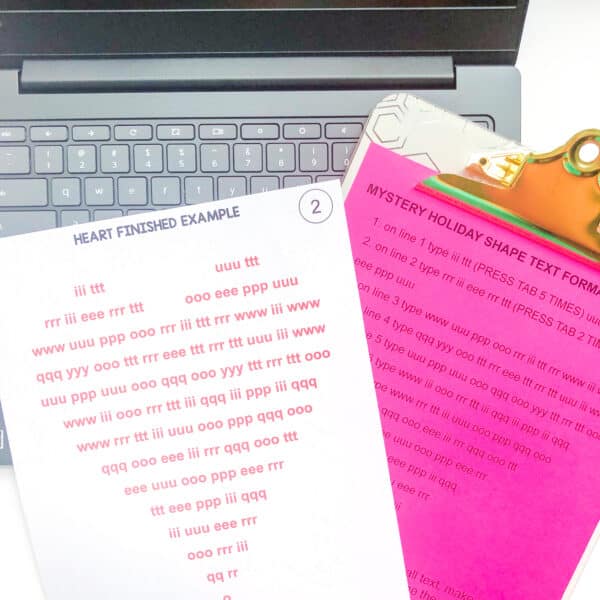 HEART FINISHED EXAMPLE
2
iii ttt uuu ttt
rrr iii eee rrr ttt ooo eee ppp uuu
www uuu ppp ooo rrr iii ttt rrr www iii www
qqq yyy ooo ttt rrr eee ttt rrr ttt uuu iii www
uuu ppp uuu ooo qqq ooo yyy ttt rrr ttt ooo
www iii ooo rrr ttt iii qqq iii ppp iii qqq
www rrr ttt iii uuu ooo ppp qqq ooo
qqq ooo eee iii rrr qqq ooo ttt
eee uuu ooo ppp eee rrr
ttt eee ppp iii qqq
iii uuu eee rrr
ooo rrr iii
qq rr
MYSTERY HOLIDAY SHAPE TEXT
1. on line 1 type iii ttt (PRESS TAB 5 TIMES)
2. on line 2 type rrr iii eee rrr ttt (PRESS TAB 2
eee ppp uuu
on line 3 type www uuu ppp ooo rrr iii ttt rrr www iii
line 4 type qqq yyy ooo ttt rrr eee ttt rrr ttt uuu iii
5 type uuu ppp uuu ooo qqq ooo yyy ttt rrr ttt
www iii ooo rrr ttt iii qqq iii ppp iii qqq
www rrr ttt iii uuu ooo ppp qqq ooo
qqq ooo eee iii rrr qqq ooo ttt
uuu ooo ppp eee rrr
eee ppp iii qqq
eee rrr
text, make